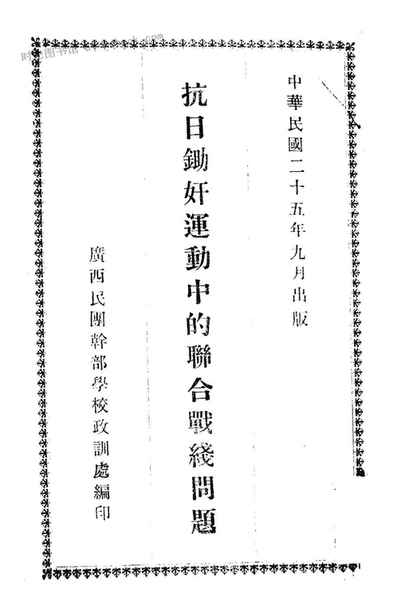 中華民國二十五年九月出版
抗日鋤奸運動中的聯合戰綫問題
廣西民團幹部學校政訓處編印